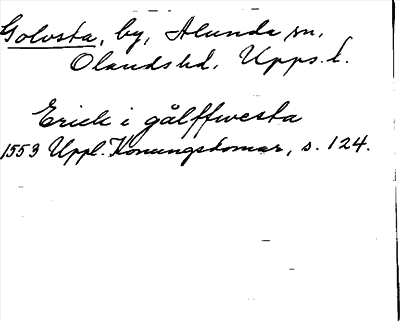 Golvsta, by, Alunda sn,
Olands hd, Upps. l.
Erick i gålffwesta
1553 Uppl. Konungsdomar, s. 124.